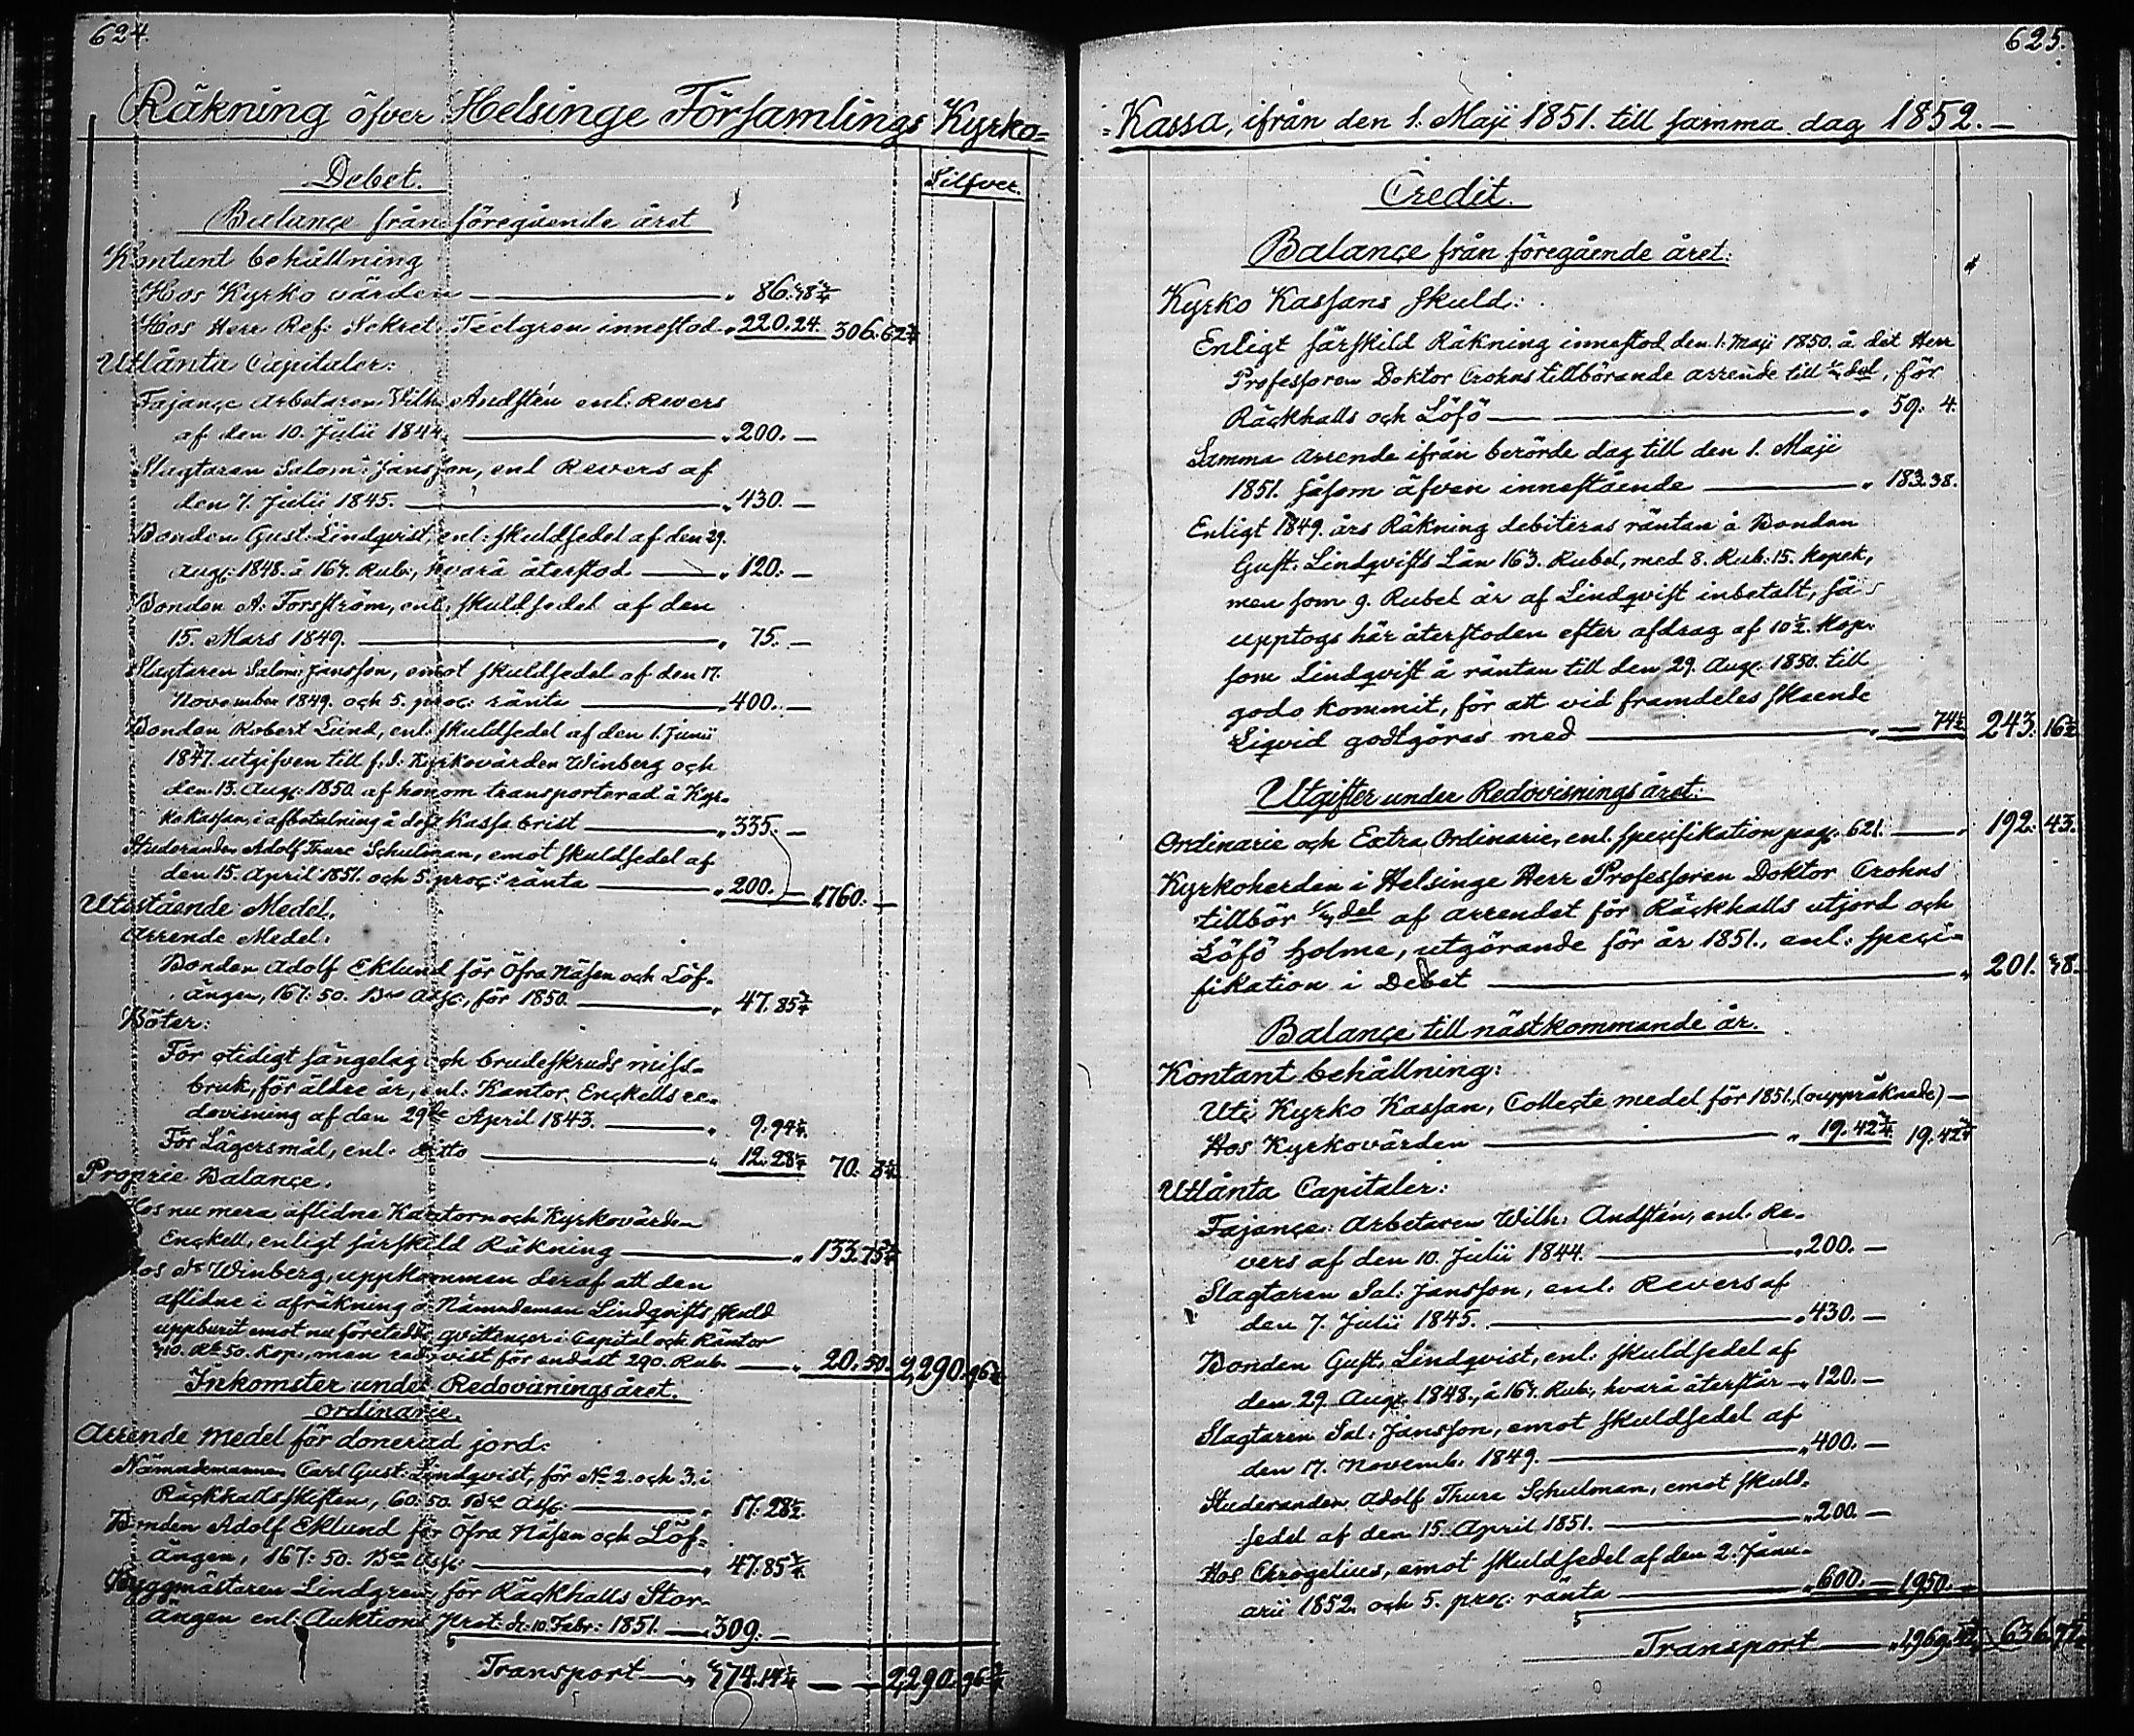 624.
Räkning öfver Helsinge Församlings Kyrko=
Debet.
Silfver.
Balançe från föregående året
Kontant behållning
Hos Kyrko värden — " 86.48 3/4
Hos Herr Ref: Sekret: Tielgren innestod " 220.24. 306.62 3/4
Utlånta Capitaler:
Fajançe Arbetaren Wilh: Andstén enl: Revers
af den 10. Julii 1844. — " 200. —
Slagtaren Salom: Jansson, enl Revers af
den 7. Julii 1845. — " 430. —
Bonden Gust: Lindqvist, enl: skuldsedel af den 29.
Aug: 1848. å 163. Rub:, hvarå återstod — " 120. —
Bonden A: Forsström, enl: skuldsedel af den
15. Mars 1849. — " 75. —
Slagtaren Salom: Jansson, emot skuldsedel af den 17.
November 1849. och 5. proc: ränta — " 400. —
Bonden Robert Lund, enl: skuldsedel af den 1. Junii
1847. utgifven till f.d: Kyrkovärden Winberg och
den 13. Aug: 1850. af honom transporterad å Kyr=
kokassan, i afbetalning å dess Kassa brist — " 335. —
Studeranden Adolf Thure Schulman, emot skuldsedel af
den 15. April 1851. och 5. proç: ränta — " 200. — 1760. —
Utestående Medel.
Arrende Medel.
Bonden Adolf Eklund för Öfra Näsen och Löf-
ängen, 167: 50. Bco Ass:, för 1850. — " 47. 85 3/4
Böter:
För otidigt sängelag och brudeskruds miss-
bruk, för äldre år, enl: Kantor Enckells re-
dovisning af den 29de April 1843. — " 9. 94
För Lägersmål, enl: ditto — " 12. 28 70. 8
Proprie Balançe.
Hos nu mera aflidne Kantorn och Kyrkovärden
Enckell, enligt särskild Räkning — " 133.75
Hos do Winberg, uppkommen deraf att den
aflidne i afräkning å Nämndeman Lindqvists skuld
uppburit emot nu företedde qvittençer i Capital och Räntor
310. Rb 50. Kop:, men redovist för endast 290. Rub. — " 20. 50. 2,290. 96
Inkomster under Redovisningsåret.
Ordinarie.
Arrende Medel för donerad jord:
Nämndemannen Carl Gust: Lindqvist, för No 2. och 3. i
Räckhalls skiften, 60: 50. Bco Ass: — " 17. 28
Bonden Adolf Eklund för Öfra Näsen och Löf-
ängen, 167: 50. Bco Ass: — " 47. 85 3/4
Byggmästaren Lindgren för Räckhalls Stor-
ängen enl: Auktions Prot: d: 10 Febr: 1851. — 309. —
Transport — " 374.14 — — 2,290. 96
625.
=Kassa, ifrån den 1. Maji 1851. till samma dag 1852. —
Credit.
Balançe från föregående året:
Kyrko Kassans skuld:
Enligt särskild Räkning innestod den 1. Maji 1850. å det Herr
Professoren Doktor Crohns tillbörande arrende till del, för
Räckhalls och Löfö — " 59: 4.
Samma arrende ifrån berörde dag till den 1. Maji
1851. såsom äfven innestående — " 183.38.
Enligt 1849. års Räkning debiteras räntan å Bonden
Gust. Lindqvists Lån 163. Rubel, med 8. Rub: 15. Kopek,
men som 9. Rubel är af Lindqvist inbetalt, så
upptogs här återstoden efter afdrag af 10 1/2. Kop:
som Lindqvist å räntan till den 29. Aug: 1850. till
godo kommit, för att vid framdeles skeende
Liqvid godtgöras med — " — 74 1/2 243. 16 1/2
Utgifter under Redovisningsåret:
Ordinarie och Extra Ordinarie, enl. specifikation pag. 621. — " 192. 43.
Kyrkoherden i Helsinge Herr Professoren Doktor Crohns
tillbör del af arrendet för Räckhalls utjord och
Löfö holme, utgörande för år 1851., enl: speci=
fikation i Debet — " 201. 38.
Balançe till nästkommande år.
Kontant behållning:
Uti Kyrko Kassan, Collecte medel för 1851., (ouppräknade) —
Hos Kyrkovärden — " 19. 42 3/4 19. 42 3/4
Utlånta Capitaler:
Fajançe: Arbetaren Wilh: Andstén, enl. Re-
vers af den 10. Julii 1844. — " 200. —
Slagtaren Sal: Jansson, enl. Revers af
den 7. Julii 1845. — " 430. —
Bonden Gust. Lindqvist, enl: skuldsedel af
den 29. Aug: 1848., å 163. Rub:, hvarå återstår — " 120. —
Slagtaren Sal: Jansson, emot skuldsedel af
den 17. Novemb: 1849. — " 400. —
Studeranden Adolf Thure Schulman, emot skuld-
sedel af den 15. April 1851. — " 200. —
Hos Chrogelius, emot skuldsedel af den 2. Janu-
arii 1852. och 5. proc: ränta — " 600. — 1950. —
Transport — " 1,969. 42 3/4 636.97 1/2